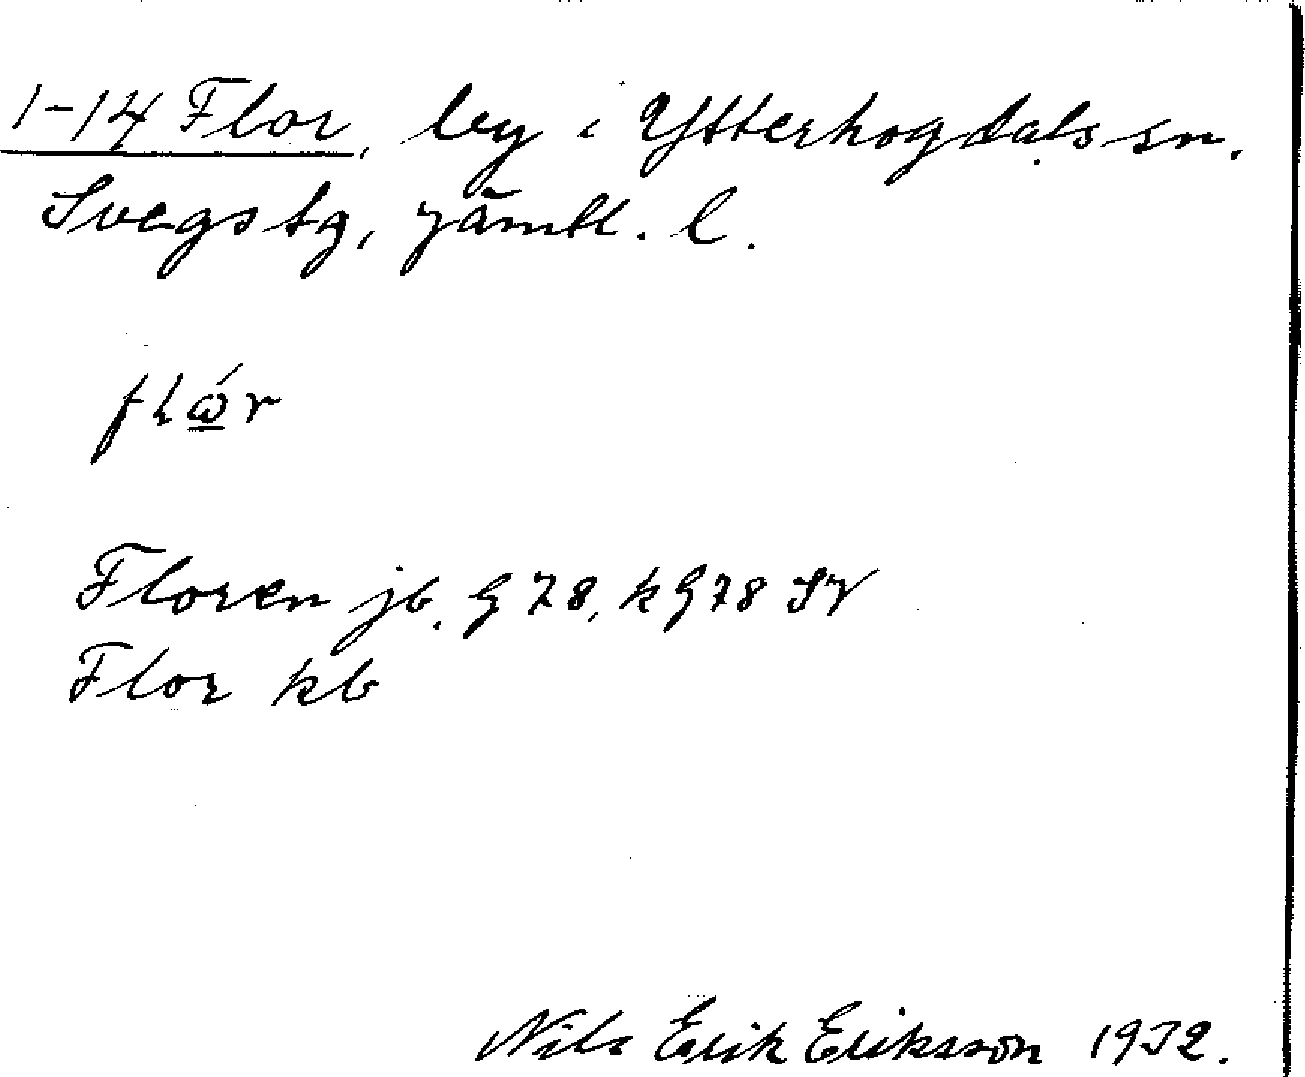 1-14 Flor, by i Ytterhogdals sn.
Svegs tg, Jämtl. l.
flǿr
Floren jb, G 78, k G 78 SV
Flor kb
Nils Erik Eriksson 1932.